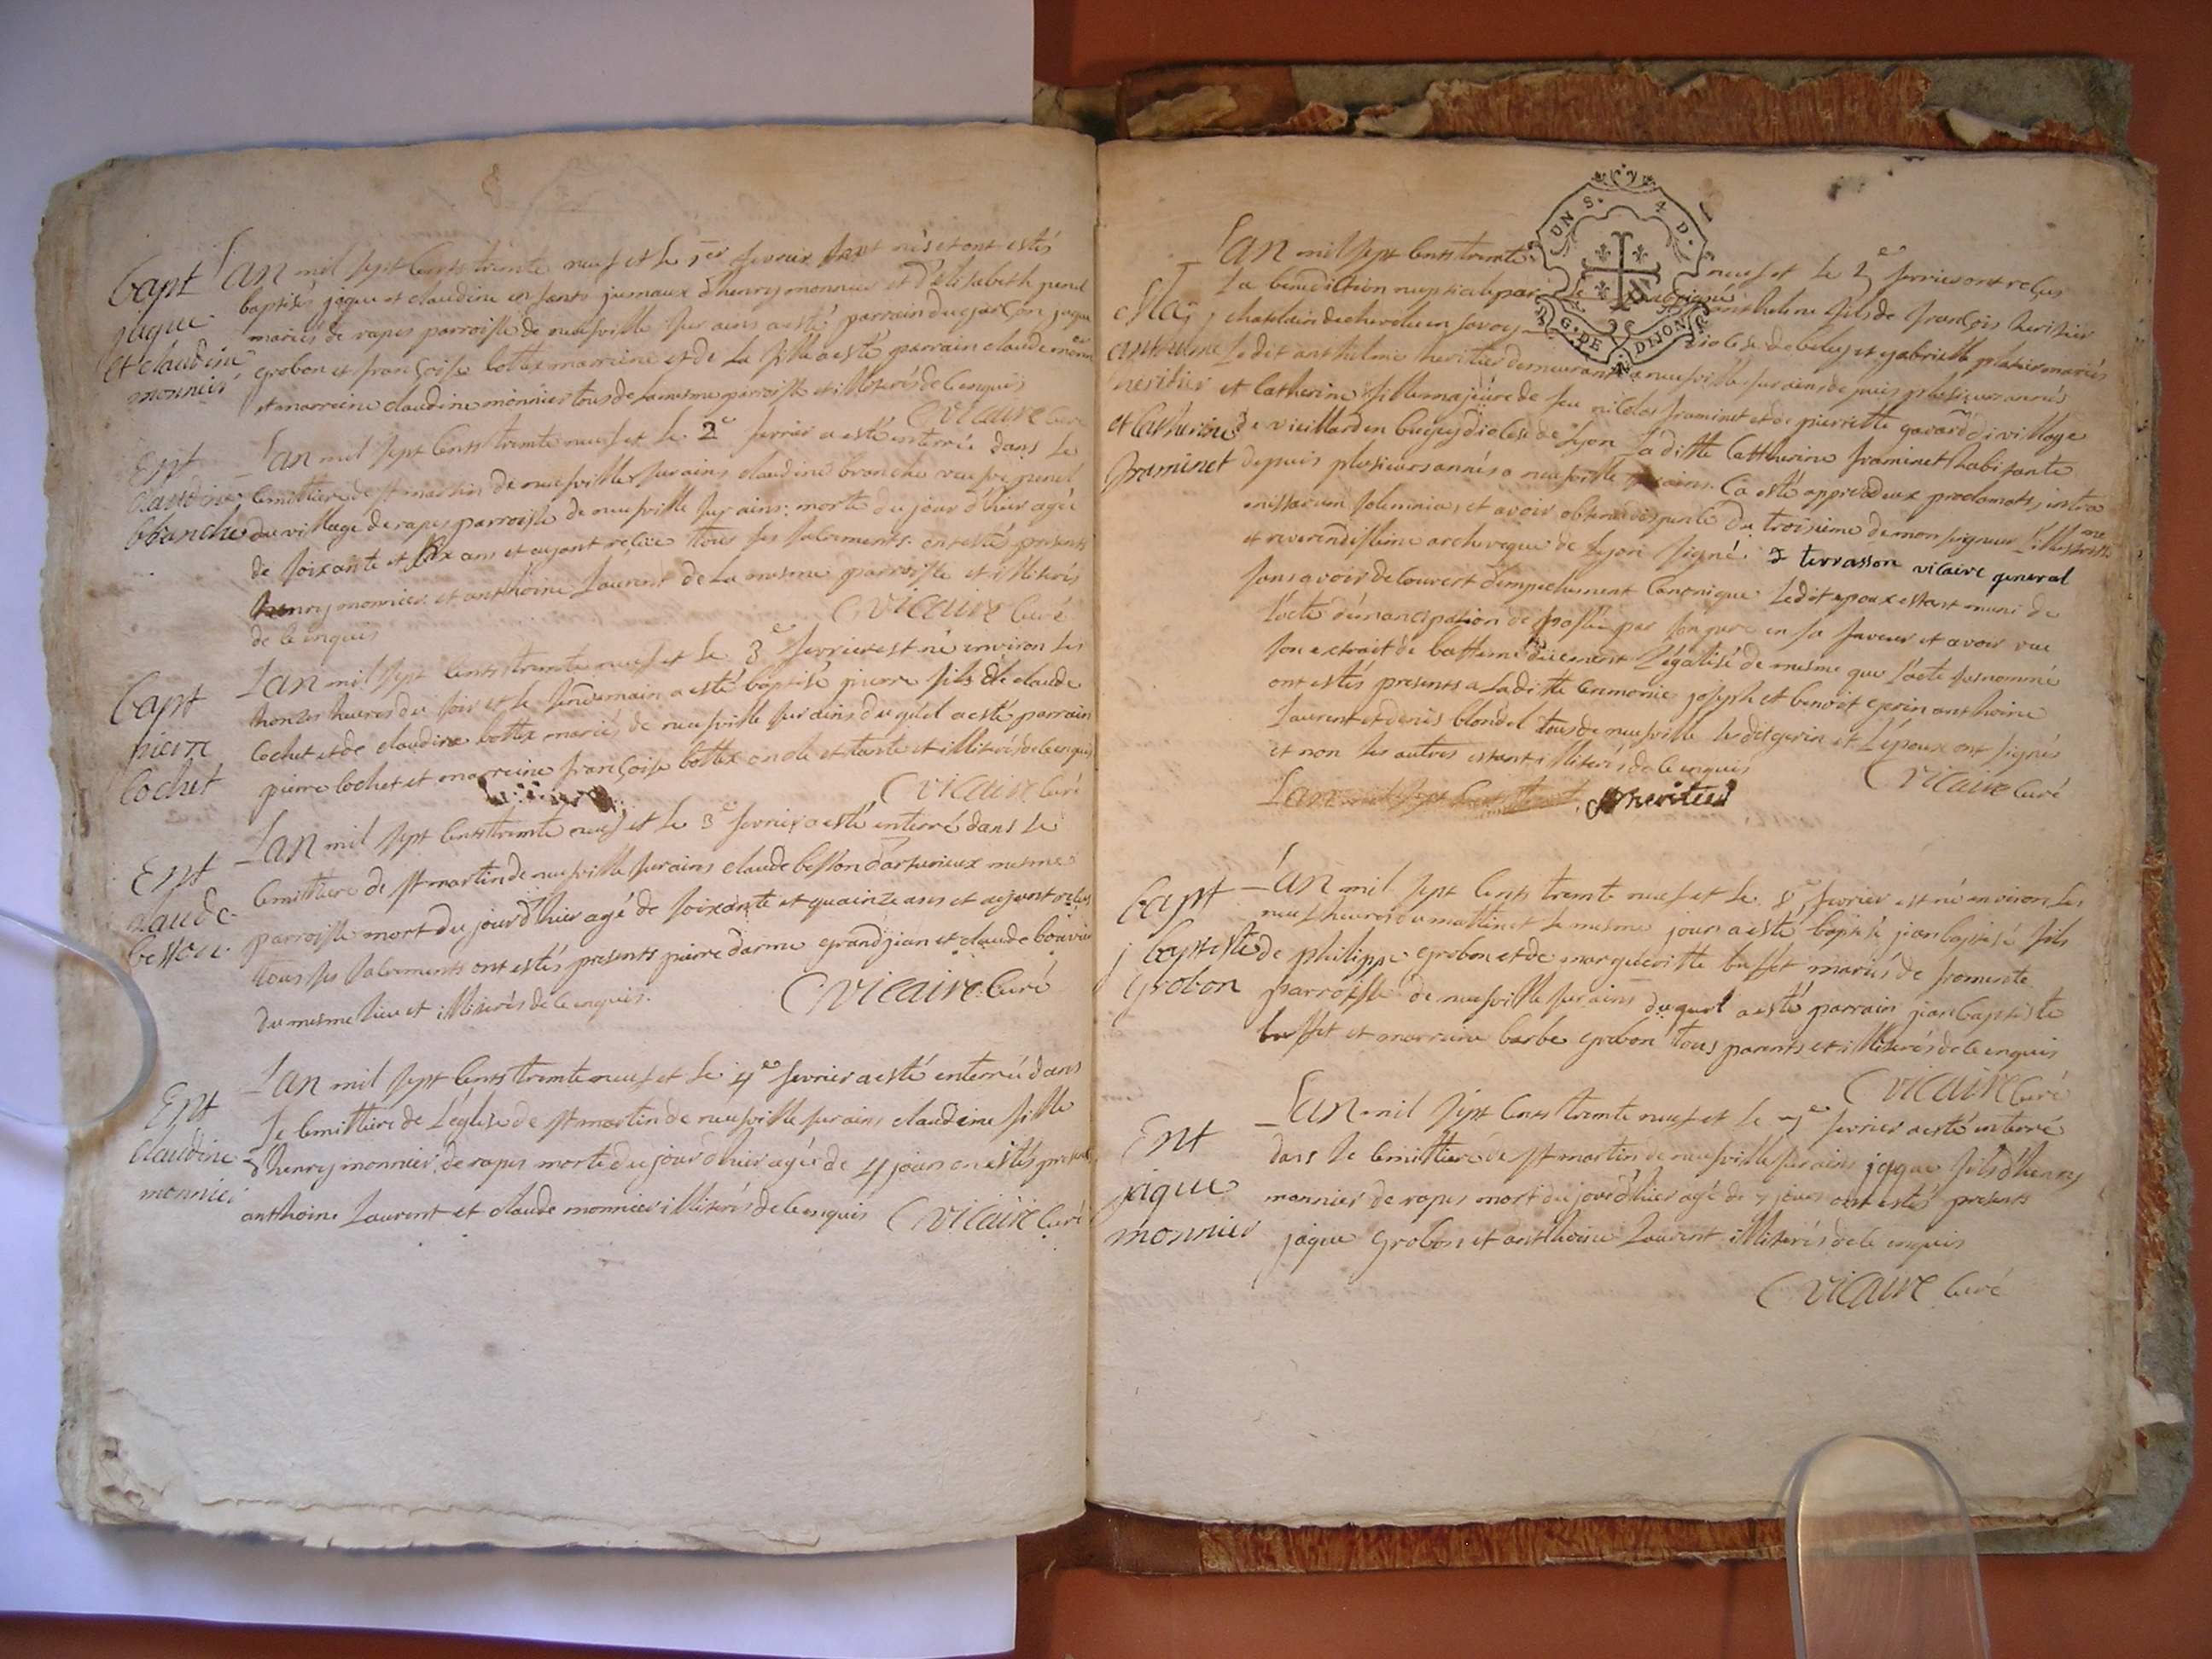 Bapt
jaque
et claudine
monnier
Lan mil sept cents trente neuf et le 1er fevrier sont nés et ont estés
baptisés jaque et claudine enfants jumaux d'henry monnier et d'élisabeth penel
mariés de rapes parroisse de neufville sur ains a esté parrain du garçon jaque
grobon et françoise bottex marreine et de la fille a esté parrain claude monnier
et marreine claudine monnier tous de la mesme parroisse et illiterés de ce enquis
Vicaire Curé
Ent
claudine
branche
Lan mil sept cents trente neuf et le 2e fevrier a esté enterrée dans le
cemittiere de st martin de neufville sur ains claudine branche veufve penel
du village de rapes parroisse de neufville sur ains morte du jour d'hier agée
de soixante et six ans et ayant reçue tous ses sacrements ont esté presents
henry monnier et anthoine Laurent de la mesme parroisse et illiterés
de ce enquis
Vicaire Curé
Bapt
pierre
Cochet
Lan mil sept cents trente neuf et le 3e fevrier est né environ les
honzes heures du soir et le lendemain a esté baptisé pierre fils de claude
cochet et de claudine bottex mariés de neufville sur ains duquel a esté parrain
pierre cochet et marreine françoise bottex oncle et tante et illiterés de ce enquis
Vicaire Curé
Ent
claude
besson
Lan mil sept cents trente neuf et le 3e fevrier a esté enterré dans le
cemittiere de st martin de neufville sur ains claude besson d'arturieux mesme
parroisse mort du jour d'hier agé de soixante et quainze ans et ayant reçus
tous ses sacrements ont estés presents pierre darme grandjean et claude bouvier
du mesme lieu et illiterés de ce enquis.
Vicaire Curé
Ent
claudine
monnier
Lan mil sept cents trente neuf et le 4e fevrier a esté enterrée dans
le cemittiere de l'église de st martin de neufville sur ains claudine fille
d'henry monnier de rapes morte du jour d'hier agée de 4 jours on estés presents
anthoine Laurent et claude monnier illiterés de ce enquis Vicaire Curé
UN S. 4 D.
G. DE DIJON
Mag
anthelme
heritier
et Catherine
framinet
Lan mil sept cents trente neuf et le fevrier ont reçus
la benediction nuptiale par le soubsigné anthelme fils de françois heritier
chatelain de en savoy diocese de beley et gabrielle mariés
le dit anthelme heritier demeurant a neufville sur ains depuis plusieurs annés
et Catherine fille majeure de feu nicolas framinet et de pierrette gavard du village
de vieillard en bugey diocese de Lyon la ditte Catherine framinet habitante
depuis plusieurs annés a neufville sur ains. Ca esté apprés deux proclamats intra
missarum solemnia, et avoir obtenu dispense du troisieme de monseigneur l'illustrissime
et reverendissime archeveque de Lyon signé terrasson vicaire general
sans avoir decouvert d'empechement canonique ledit epoux estant muni de
l'acte d'émancipation de passé par son pere en sa faveur et avoir vue
son extrait de battême duement légalisé de mesme que l'acte susnommé
ont estés presents a la ditte ceremonie joseph et benoit gerin anthoine
Laurent et denis blondel tous de neufville les dits gerin et l'époux ont signés
et non les autres estant illiterés de ce enquis
Vicaire Curé
Lan mil sept cents trente
heritier
Bapt
j baptiste
Grobon
Lan mil sept cents trente neuf et le 8e fevrier est né environ les
neuf heures du mattin et le mesme jour a esté baptisé jean baptiste fils
de philippe grobon et de margueritte buffet mariés de fromente
parroisse de neufville sur ains duquel a esté parrain jean baptiste
buffet et marreine barbe grobon tous parents et illiterés de ce enquis
Vicaire Curé
Ent
jaque
monnier
Lan mil sept cents trente neuf et le 7e fevrier a esté enterré
dans le cemittiere de st martin de neufville sur ains jaque fils d'henry
monnier de rapes mort du jour d'hier agé de 7 jours ont esté presents
jaque grobon et anthoine Laurent illiterés de ce enquis
Vicaire Curé